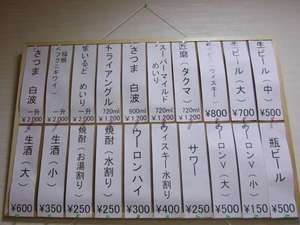 生ビール（中）
¥500
生ビール（大）
¥700
ウイスキー
¥800
720ml
¥2,000
スーパーマイルド
めいり
720ml
¥1,200
さつま 白波
900ml
¥1,200
トライアングル
720ml
¥1,200
めいり
一升
¥2,000
一升
¥2,000
さつま 白波
一升
¥2,000
瓶ビール
¥500
ウーロン（小）
¥150
ウーロンV（大）
¥500
サワー
¥250
ウイスキー水割り
¥400
ウーロンハイ
¥300
焼酎（水割り）
¥250
焼酎（お湯割り）
¥250
生酒（小）
¥350
生酒（大）
¥600